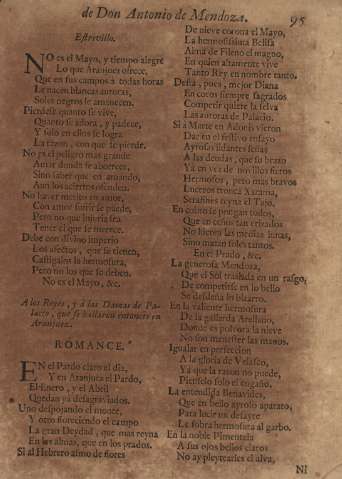 de Don Antonio de Mendoza. 95
Estrevillo.
No es el Mayo, y tiempo alegre
Lo que Aranjuez ofrece,
Que en sus campos à todas horas
La nacen blancas auroras,
Soles negros se amanecen.
Pierdese quanto se vive,
Quanto se adora, y padece,
Y solo en ellos se logra
La razon, con que se pierde.
No es el peligro mas grande
Amar donde se aborrece,
Sino saber que en amando,
Aun los aciertos ofenden.
No hacer meritos en amor,
Con amor sufrir se puede,
Pero no que injuria sea
Tener el que se merece.
Debe con divino imperio
Los afectos, que se tienen,
Castigalos la hermosura,
Pero no los que se deben.
No es el Mayo, &c.
A los Reyes, y à las Damas de Palacio, que se hallaron entonces en
Aranjuez.
ROMANCE.
EN el Pardo claro el dia,
Y en Aranjuez el Pardo,
El Enero, y el Abril
Quedan ya desagraviados.
Uno despojando el monte,
Y otro floreciendo el campo
La gran Deydad, que mas reyna
En las almas, que en los prados.
Si al Hebrero almo de flores
De nieve corona el Mayo,
La hermosissima Belisa
Alma de Fileno el magno,
En quien altamente vive
Tanto Rey en nombre tanto.
Desta, pues, mejor Diana
En cotos siempre sagrados
Competir quiere la selva
Las auroras de Palacio.
Si a Marte en Adonis vieron
Dar en el festivo ensayo
Ayrosos
A las deudas, que su brazo
Ya en vez de novillos fieros
Hermosos, pero mas bravos
Luceros tronca Xarama,
Serafines reyna el Tajo,
En como se pongan todos,
Que en
No hieren las medias lunas,
Sino matan soles tantos.
En el Prado, &c.
La generosa Mendoza,
Que el Sol traslada en un rasgo,
De competirse en lo bello
Se desdeña lo bizarro.
En la valiente hermosura
De la gallarda Arellano,
Donde es polvora la nieve
No son menester las manos.
Igualar en perfeccion
A la gloria de Velasco,
Ya que la razon no puede,
Pienselo solo el engaño.
La entendida Benavides,
Que en bello ayroso aparato,
Para lucir un desayre
Le sobra hermosura al garbo.
En la noble Pimentela
A sus ojos bellos claros
No ay pleytearles el alva,
Ni